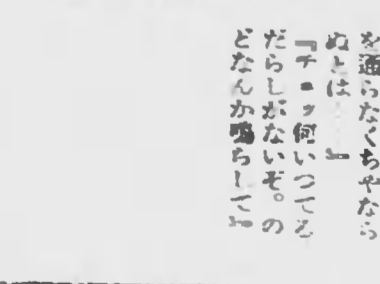 を通らなくちやなら
ぬとは……』
『チヨツ何いつてる
だらしがないぞ。の
どなんか鳴らして』